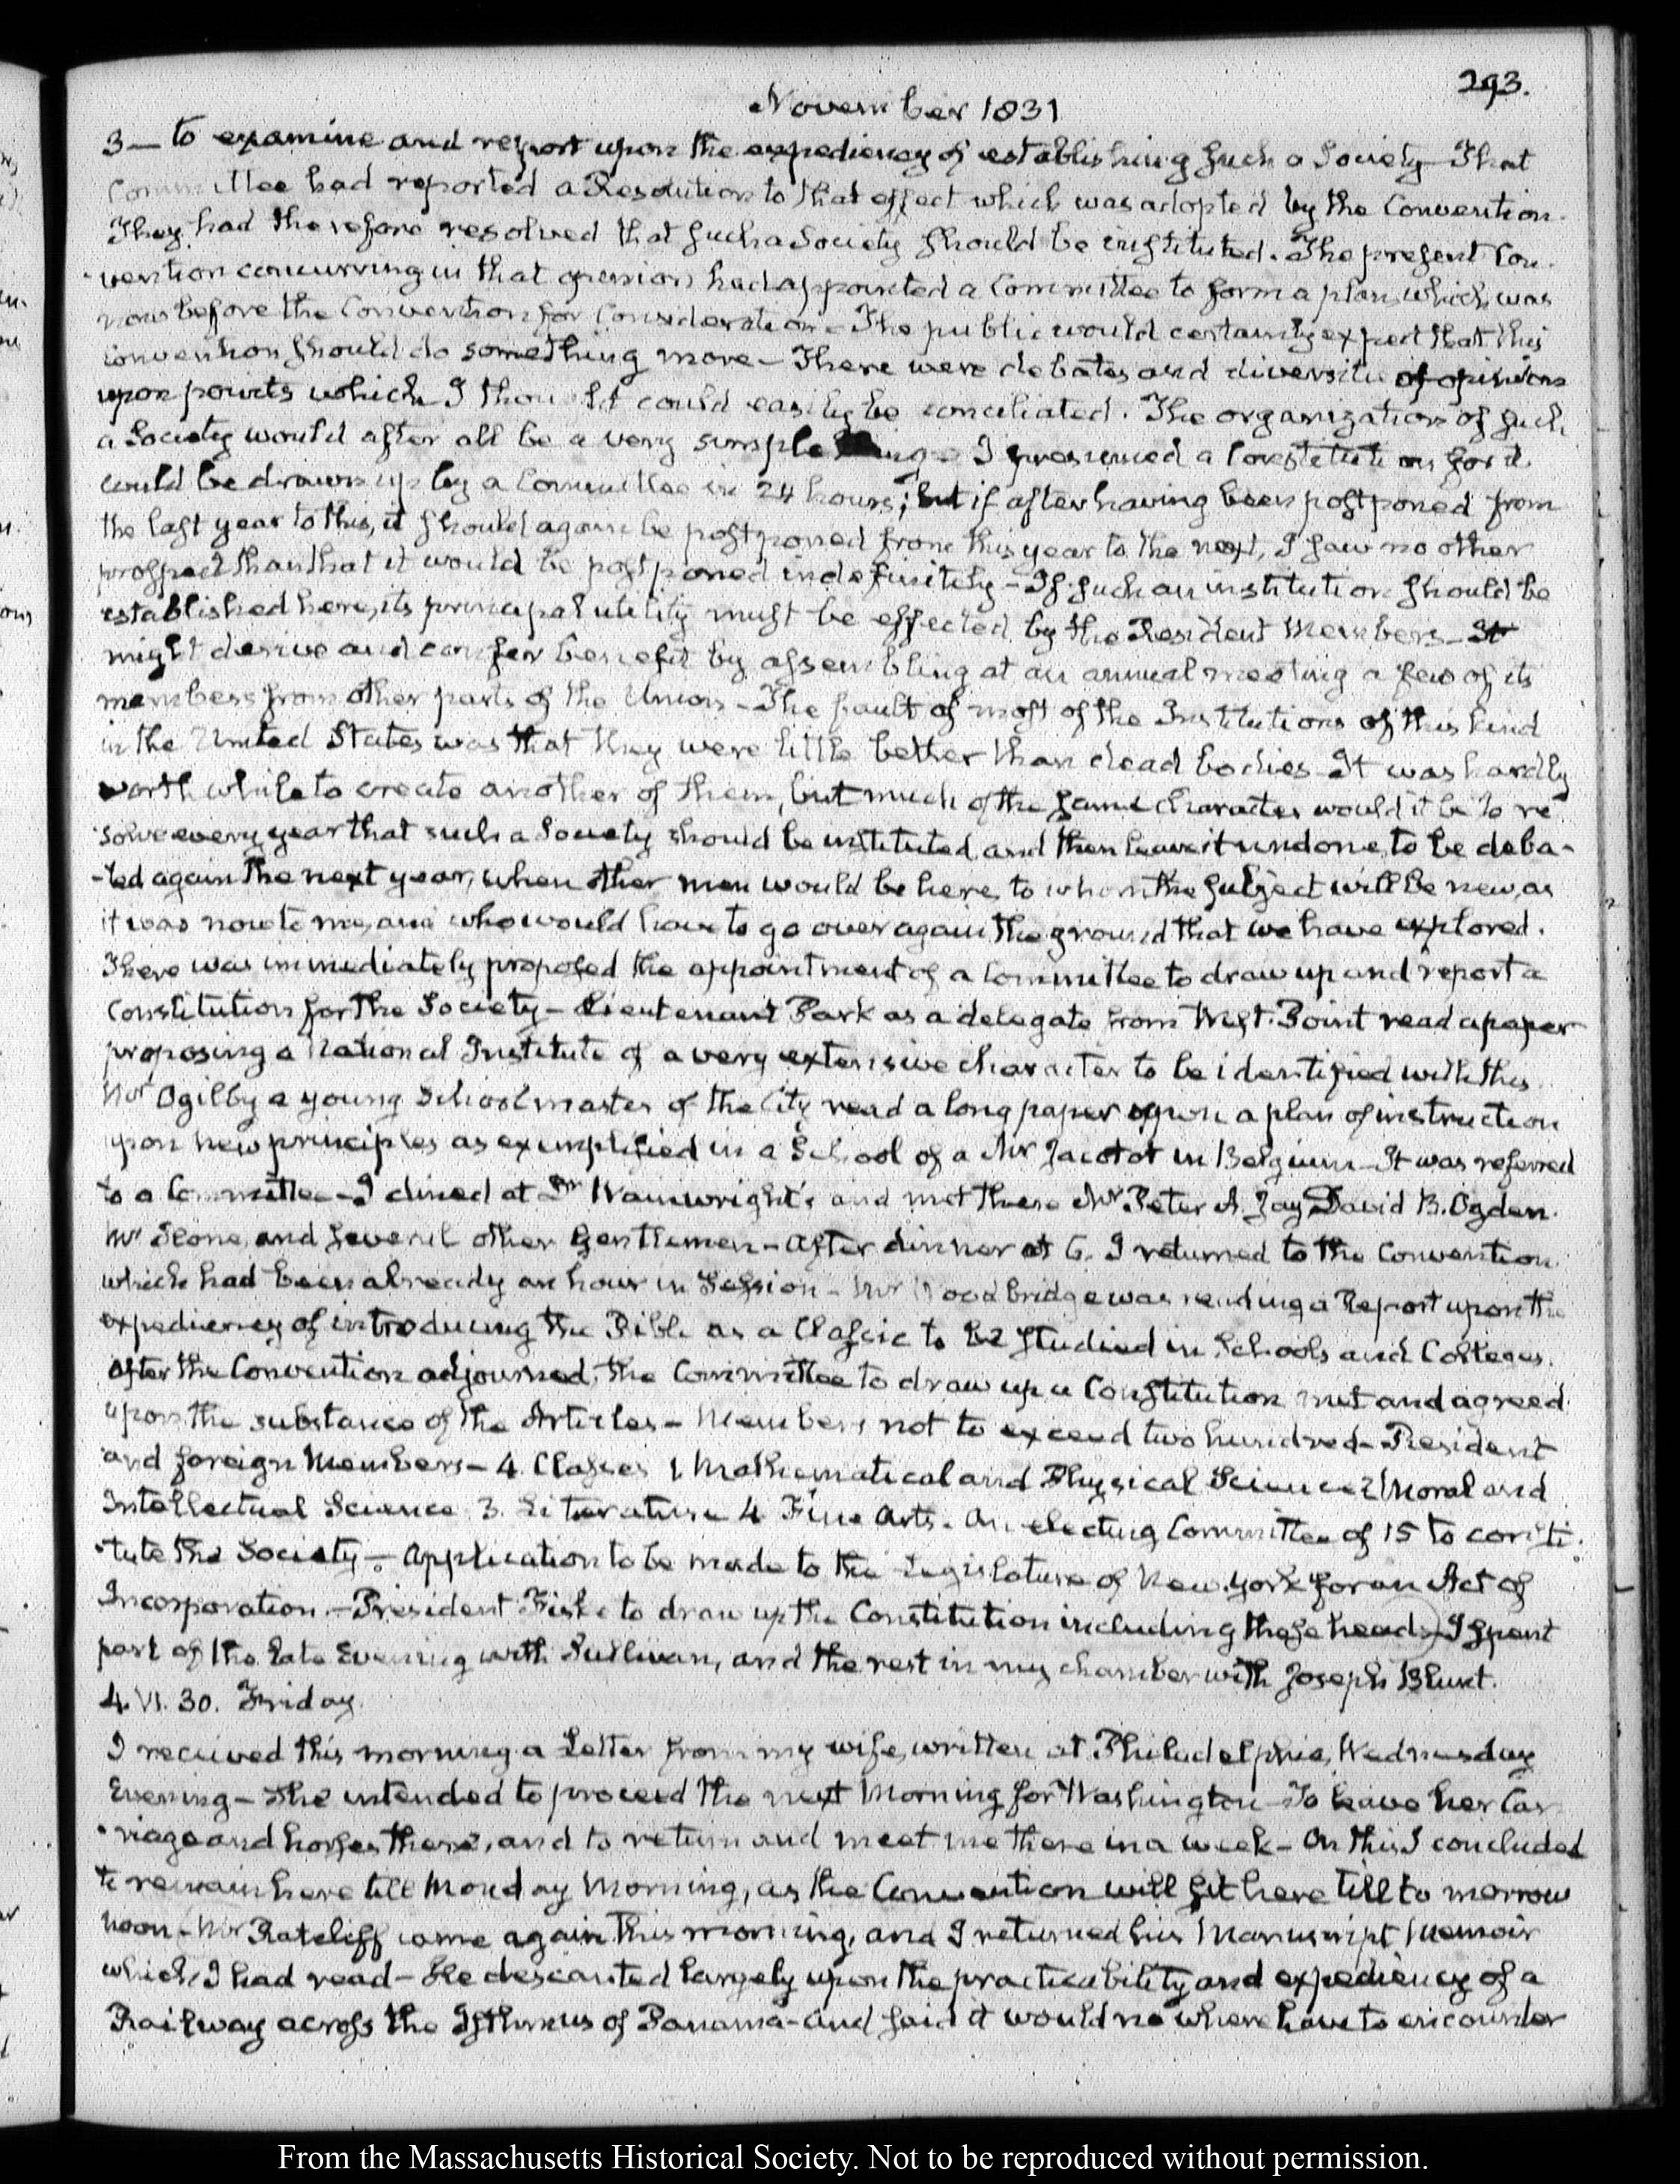 293.
November 1831
3 — to examine and report upon the expediency of establishing such a Society — That
Committee had reported a Resolution to that effect which was adopted by the Convention.
They had therefore resolved that such a Society should be instituted. The present Con-
-vention concurring in that opinion had appointed a Committee to form a plan which was
now before the Convention for Consideration — The public would certainly expect that this
convention should do something more — There were debates and diversities of opinions
upon points which I thought could easily be conciliated. The organization of such
a Society would after all be a very simple thing — I presumed a Constitution for it
could be drawn up by a Committee in 24 hours; but if after having been postponed from
the last year to this, it should again be postponed from this year to the next, I saw no other
prospect than that it would be postponed indefinitely — If such an institution should be
established here, its principal utility must be effected by the Resident Members — It
might derive and confer benefit by assembling at an annual meeting a few of its
members from other parts of the Union — The fault of most of the Institutions of this kind
in the United States was that they were little better than dead bodies — It was hardly
worth while to create another of them, but much of the same character would it be to re-
solve every year that such a Society should be instituted, and then leave it undone, to be deba-
-ted again the next year, when other men would be here, to whom the subject will be new, as
it was now to me, and who would have to go over again the ground that we have explored.
There was immediately proposed the appointment of a Committee to draw up and report a
Constitution for the Society — Lieutenant Park as a delegate from West-Point read a paper
proposing a National Institute of a very extensive character to be identified with this
Mr Ogilby a young Schoolmaster of the City read a long paper upon a plan of instruction
upon new principles as exemplified in a School of a Mr Jacotot in Belgium — It was referred
to a Committee — I dined at Dr Wainwright's and met there Mr Peter A. Jay, David B. Ogden
Mr Stone, and several other Gentlemen — After dinner at 6. I returned to the Convention
which had been already an hour in Session — Mr Woodbridge was reading a Report upon the
expediency of introducing the Bible as a Classic to be studied in Schools and Colleges.
After the Convention adjourned, the Committee to draw up a Constitution met and agreed
upon the substance of the Articles — Members not to exceed two hundred — Resident
and foreign Members — 4. Classes 1. Mathematical and Physical Science 2 Moral and
Intellectual Science 3. Literature 4 Fine Arts. An electing Committee of 15 to consti-
-tute the Society — Application to be made to the Legislature of New York for an Act of
Incorporation — President Fiske to draw up the Constitution including these heads — I spent
part of the late Evening with Sullivan, and the rest in my chamber with Joseph Blunt.
4. VI. 30. Friday.
I received this morning a Letter from my wife, written at Philadelphia, Wednesday
Evening — She intended to proceed the next Morning for Washington — To leave her Car-
-riage and horses there, and to return and meet me there in a week — On this I concluded
to remain here till Monday Morning, as the Convention will sit here till to morrow
noon — Mr Ratcliff came again this morning, and I returned his Manuscript Memoir
which I had read — He descanted largely upon the practicability and expediency of a
Railway across the Isthmus of Panama — and said it would no where have to encounter
From the Massachusetts Historical Society. Not to be reproduced without permission.